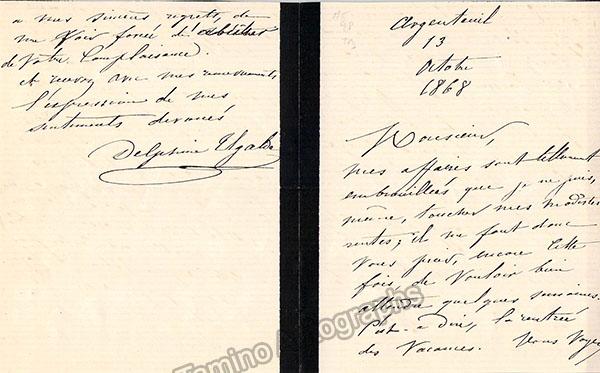 Argenteuil
13
Octobre
1868
Monsieur,
mes affaires sont tellement
embrouillées que je ne puis,
même, toucher mes modestes
rentes; il me faut donc
vous prier, encore cette
fois, de vouloir bien
attendre quelques semaines
c'est-à-dire, la rentrée
des Vacances. Vous voyez
a mes sincères regrets, de
me voir forcée d'abuser
de Votre Complaisance.
et recevez avec mes remerciements
l'expression de mes
sentiments dévoués
Delphine Ugalde
Tamino Autographs